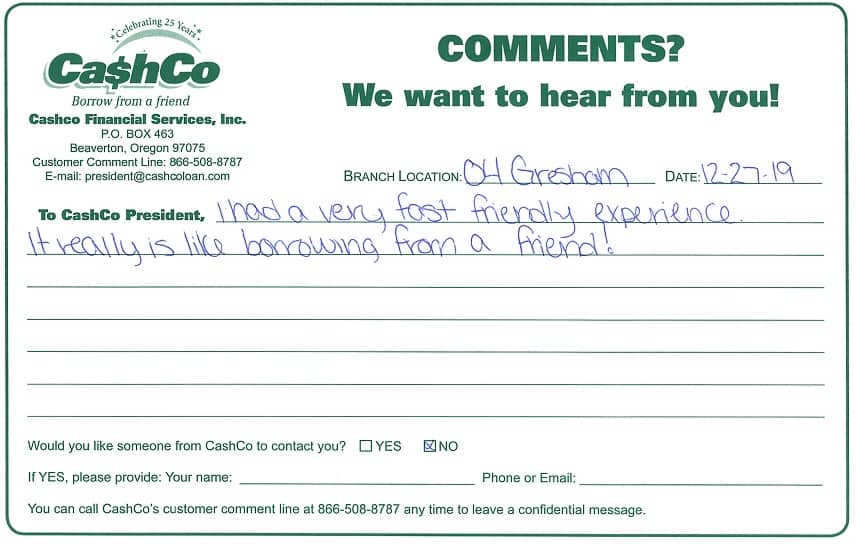 Celebrating 25 Years
Ca$hCo
Borrow from a friend
Cashco Financial Services, Inc.
P.O. BOX 463
Beaverton, Oregon 97075
Customer Comment Line: 866-508-8787
E-mail: president@cashcoloan.com
COMMENTS?
We want to hear from you!
BRANCH LOCATION: 04 Gresham DATE: 12-27-19
To CashCo President, I had a very fast friendly experience.
It really is like borrowing from a friend!
Would you like someone from CashCo to contact you? ☐ YES ☒ NO
If YES, please provide: Your name: Phone or Email:
You can call CashCo's customer comment line at 866-508-8787 any time to leave a confidential message.